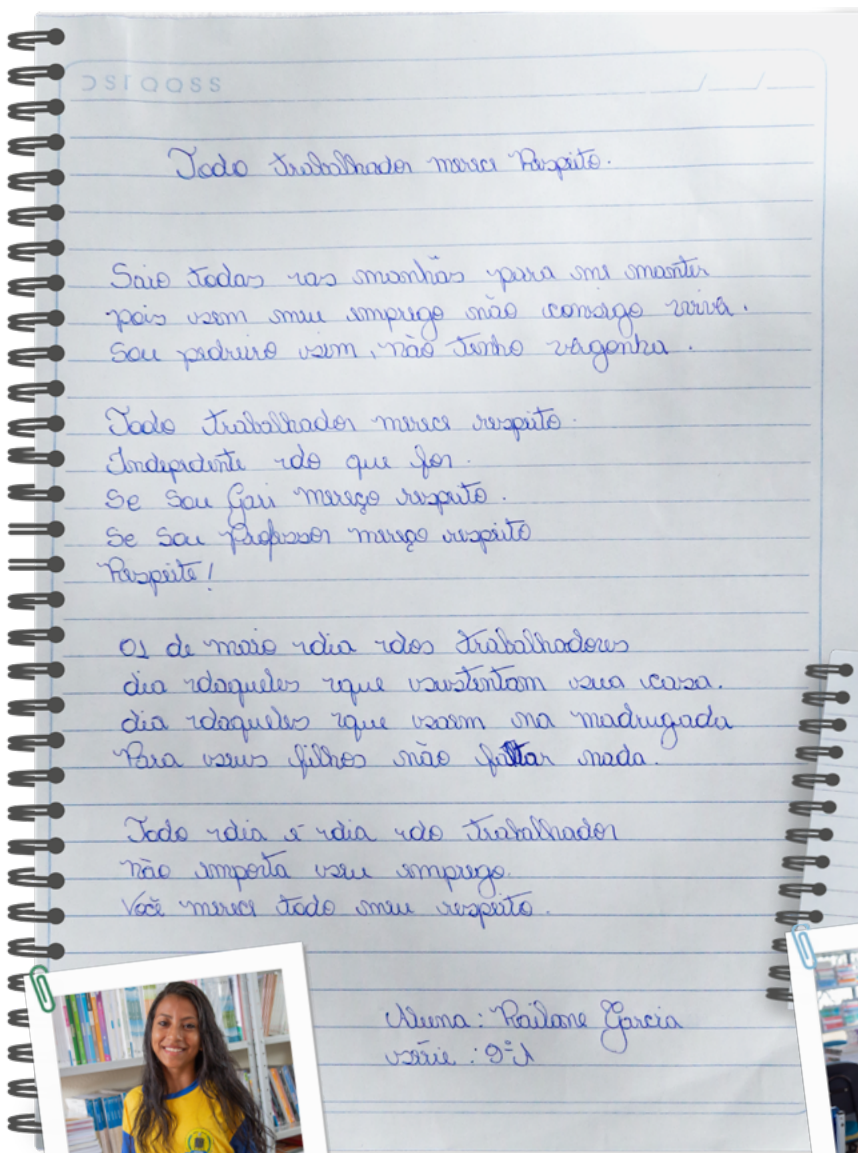 Todo trabalhador merece Respeito.
Saio todas as manhãs para me manter
pois sem meu emprego não consigo viver.
Sou pedreiro sim, não tenho vergonha.
Todo trabalhador merece respeito.
Independente do que for.
Se Sou Gari mereço respeito.
Se Sou Professor mereço respeito
Respeite!
01 de maio dia dos trabalhadores
dia daqueles que sustentam sua casa.
dia daqueles que saem na madrugada
Para seus filhos não faltar nada.
Todo dia é dia do trabalhador
não importa seu emprego.
Você merece todo meu respeito.
Aluna: Railane Garcia
série: 9º